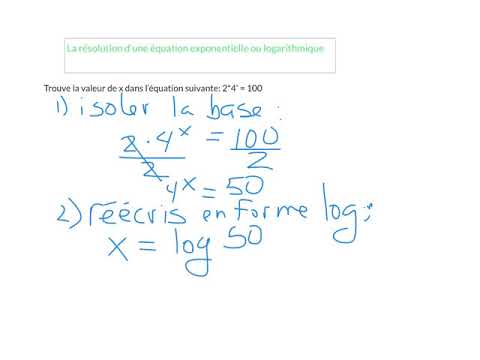 La résolution d'une équation exponentielle ou logarithmique
Trouve la valeur de x dans l'équation suivante: 2*4ˣ = 100
1) isoler la base :
2 · 4ˣ = 100
2 2
4ˣ = 50
2) réécris en forme log :
x = log 50